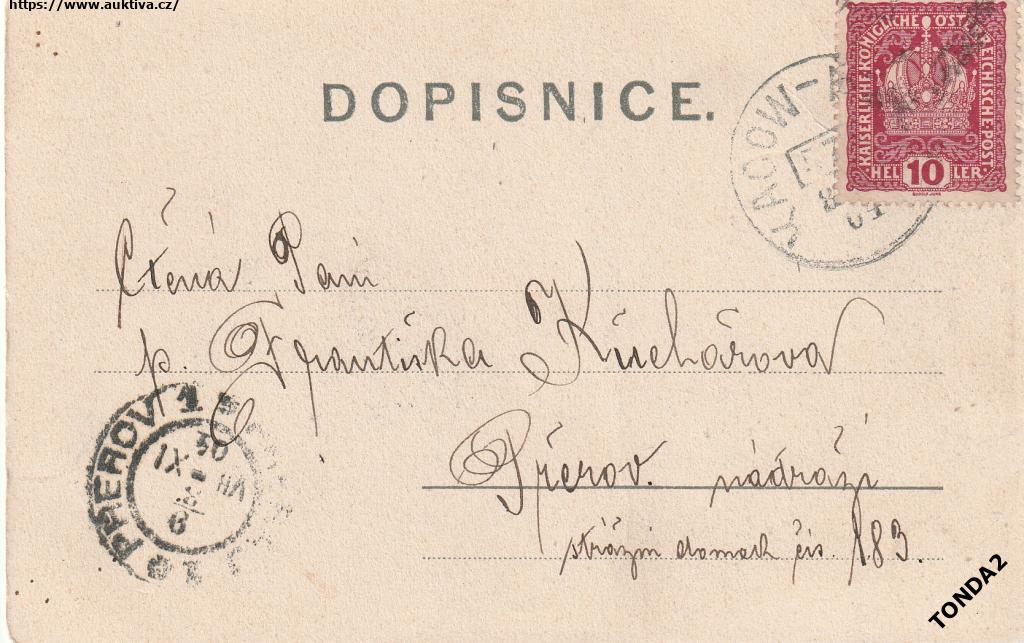 https://www.auktiva.cz/
DOPISNICE.
KAISERLICHE KÖNIGLICHE ÖSTERREICHISCHE POST
HELLER
10
Ctěná Paní
p. Františka Kuchářova
Přerov. nádraží
strážní domek čís. 183.
PŘEROV 1
TONDA2